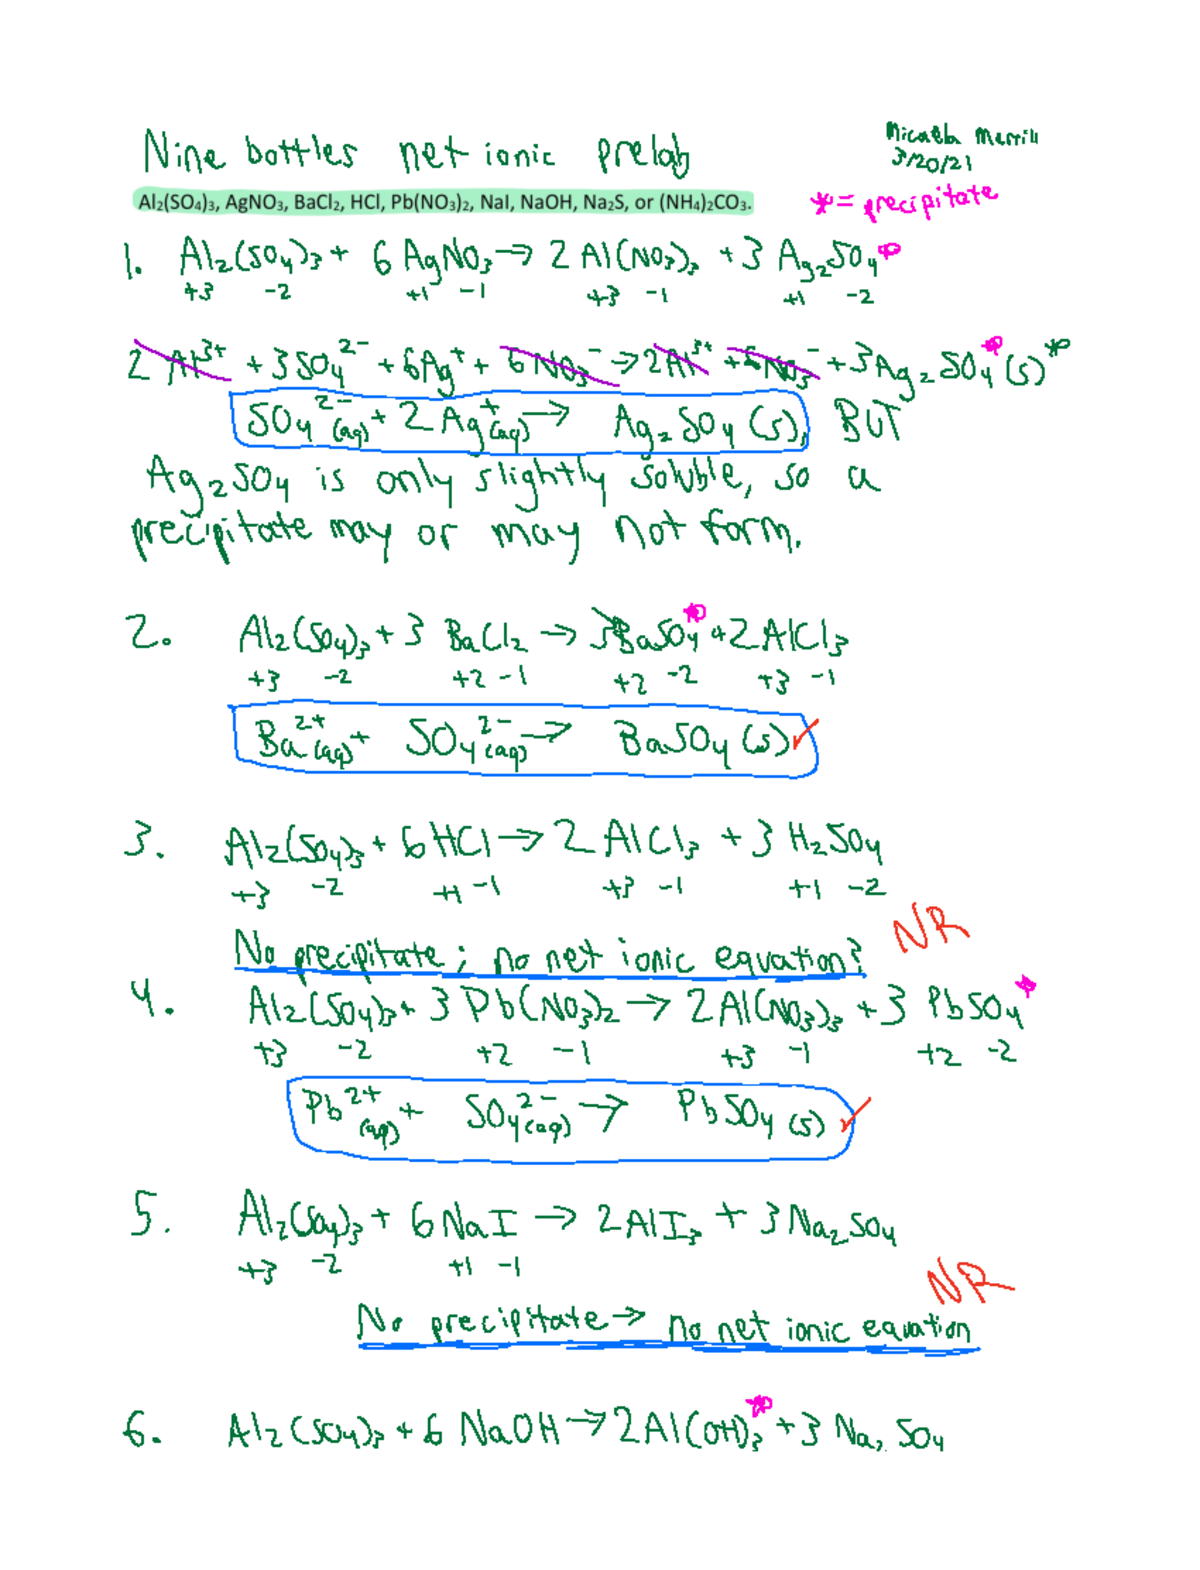 Nine bottles net ionic prelab
Micaela Merrill
3/20/21
Al₂(SO₄)₃, AgNO₃, BaCl₂, HCl, Pb(NO₃)₂, NaI, NaOH, Na₂S, or (NH₄)₂CO₃.
* = precipitate
1. Al₂(SO₄)₃ + 6 AgNO₃ → 2 Al(NO₃)₃ + 3 Ag₂SO₄*
+3 -2 +1 -1 +3 -1 +1 -2
2 Al³⁺ + 3SO₄²⁻ + 6Ag⁺ + 6NO₃⁻ → 2Al³⁺ + 6NO₃⁻ + 3Ag₂SO₄*(s)*
SO₄²⁻(aq) + 2 Ag⁺(aq) → Ag₂SO₄(s), BUT
Ag₂SO₄ is only slightly soluble, so a
precipitate may or may not form.
2. Al₂(SO₄)₃ + 3 BaCl₂ → 3BaSO₄* + 2AlCl₃
+3 -2 +2 -1 +2 -2 +3 -1
Ba²⁺(aq) + SO₄²⁻(aq) → BaSO₄(s) ✓
3. Al₂(SO₄)₃ + 6HCl → 2 AlCl₃ + 3 H₂SO₄
+3 -2 +1 -1 +3 -1 +1 -2
No precipitate; no net ionic equation? NR
4. Al₂(SO₄)₃ + 3 Pb(NO₃)₂ → 2Al(NO₃)₃ + 3 PbSO₄*
+3 -2 +2 -1 +3 -1 +2 -2
Pb²⁺(aq) + SO₄²⁻(aq) → PbSO₄(s) ✓
5. Al₂(SO₄)₃ + 6NaI → 2AlI₃ + 3Na₂SO₄
+3 -2 +1 -1
NR
No precipitate → no net ionic equation
6. Al₂(SO₄)₃ + 6 NaOH → 2Al(OH)₃* + 3 Na₂SO₄